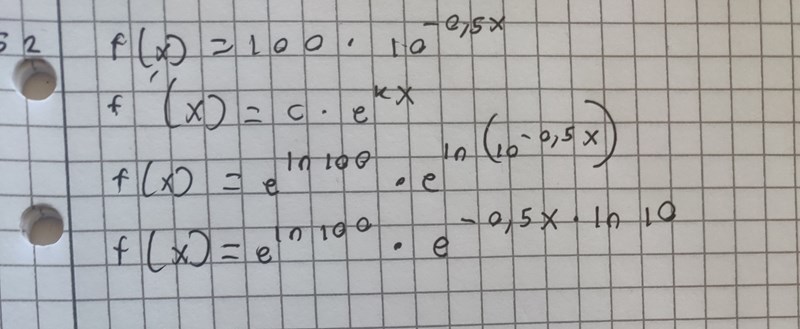 52 f(x) = 100 · 10^-0,5x
f'(x) = c · e^kx
f(x) = e^ln 100 · e^ln(10^-0,5x)
f(x) = e^ln 100 · e^-0,5x · ln 10